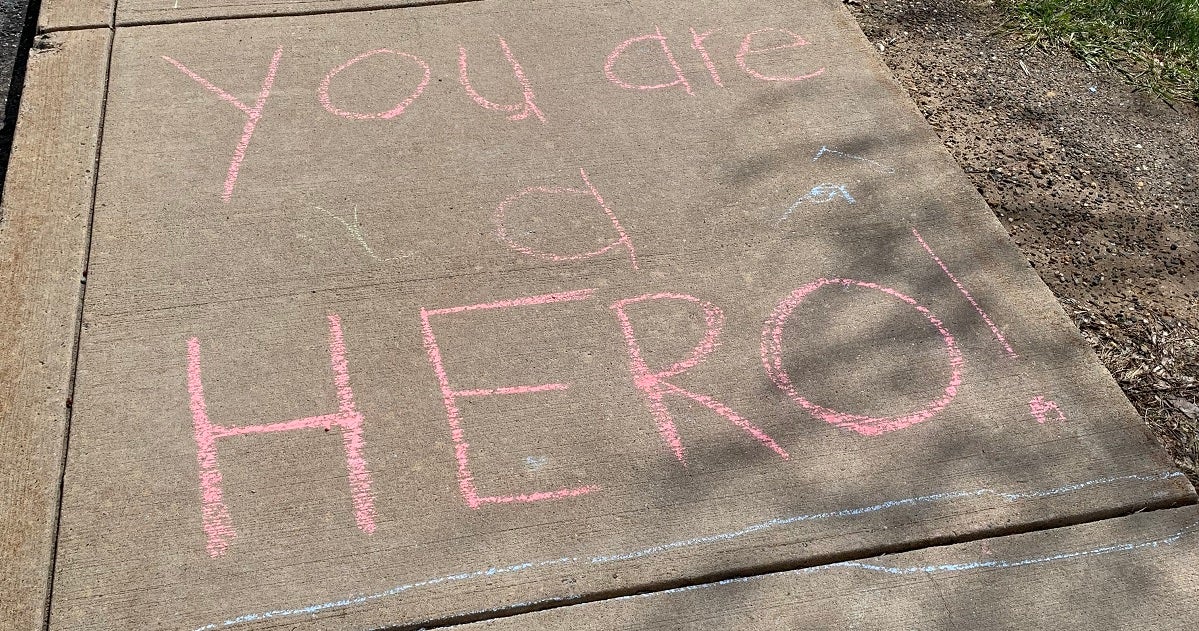 You are
a
HERO!